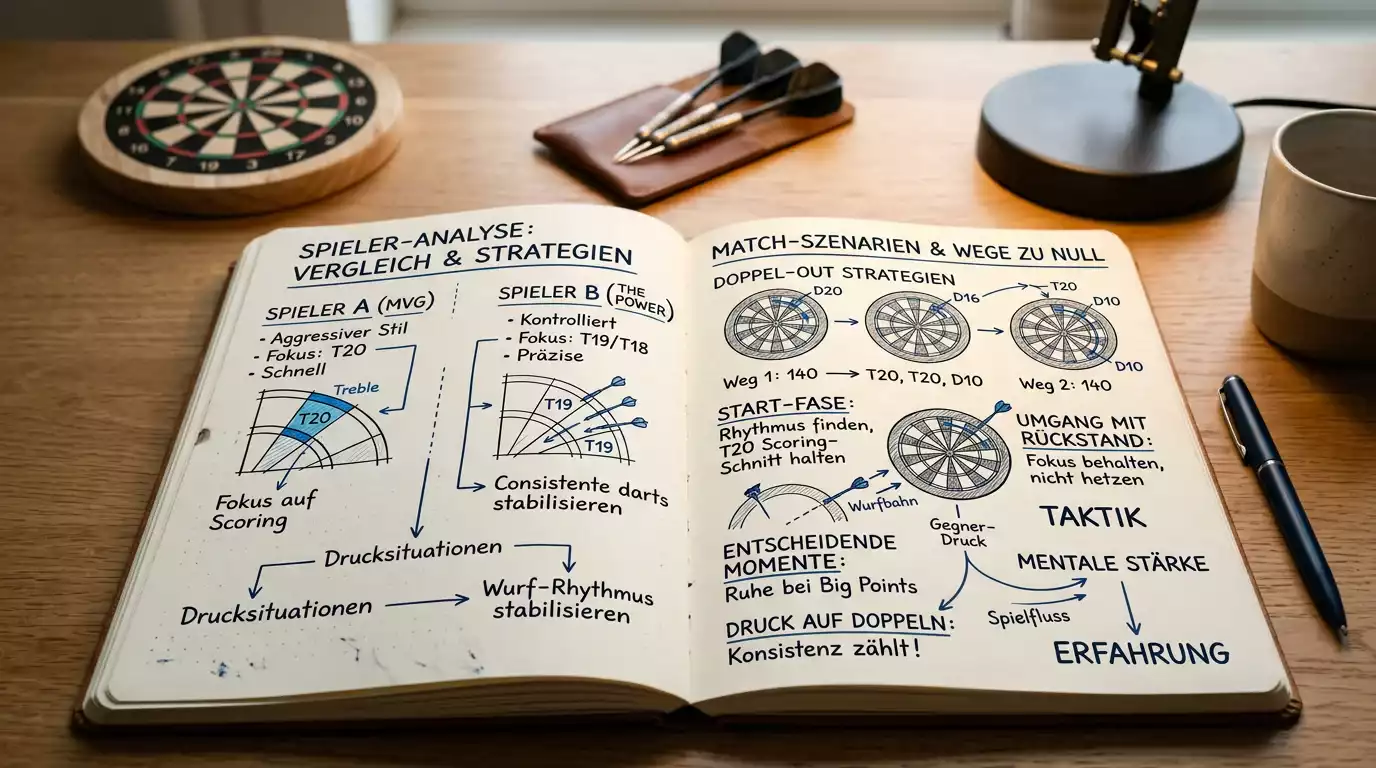 SPIELER-ANALYSE:
VERGLEICH & STRATEGIEN
SPIELER A (MVG)
- Aggressiver Stil
- Fokus: T20
- Schnell
Treble
T20
Fokus auf
Scoring
SPIELER B (THE POWER)
- Kontrolliert
- Fokus: T19/T18
- Präzise
T19
T19
Consistente darts
stabilisieren
Drucksituationen
Drucksituationen
Wurf-Rhythmus
stabilisieren
MATCH-SZENARIEN & WEGE ZU NULL
DOPPEL-OUT STRATEGIEN
D20
D16
T20
D10
D10
Weg 1: 140
T20, T20, D10
Weg 2: 140
START-FASE:
Rhythmus finden,
T20 Scoring-
Schnitt halten
Wurfbahn
UMGANG MIT
RÜCKSTAND:
Fokus behalten,
nicht hetzen
Gegner-
Druck
TAKTIK
ENTSCHEIDENDE
MOMENTE:
Ruhe bei Big Points
MENTALE STÄRKE
Spielfluss
DRUCK AUF DOPPELN:
Konsistenz zählt!
ERFAHRUNG